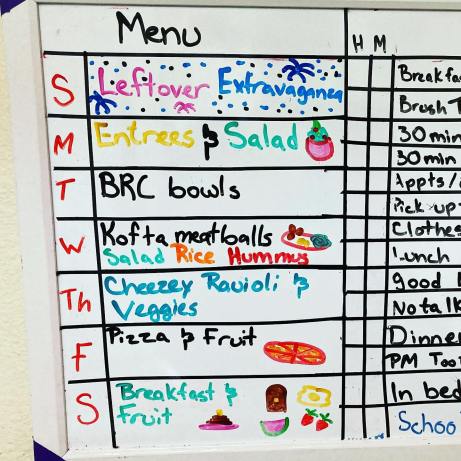 Menu
H M
S
Leftover Extravaganea
M
Entrees & Salad
T
BRC bowls
W
Kofta meatballs
Salad Rice Hummus
Th
Cheezey Ravioli &
Veggies
F
Pizza & Fruit
S
Breakfast &
Fruit
Breakfas
Brush T
30 min
30 min
Appts/
Pick up
Clothes
Lunch
good
No talk
Dinner
PM Too
In bed
Schoo